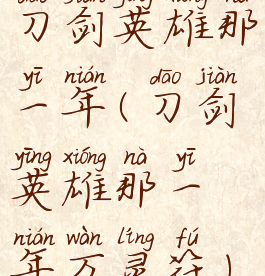 dāo jiàn yīng xióng nà
刀剑英雄那
yī nián dāo jiàn
一年(刀剑
yīng xióng nà yī
英雄那一
nián wàn líng fú
年万灵符)